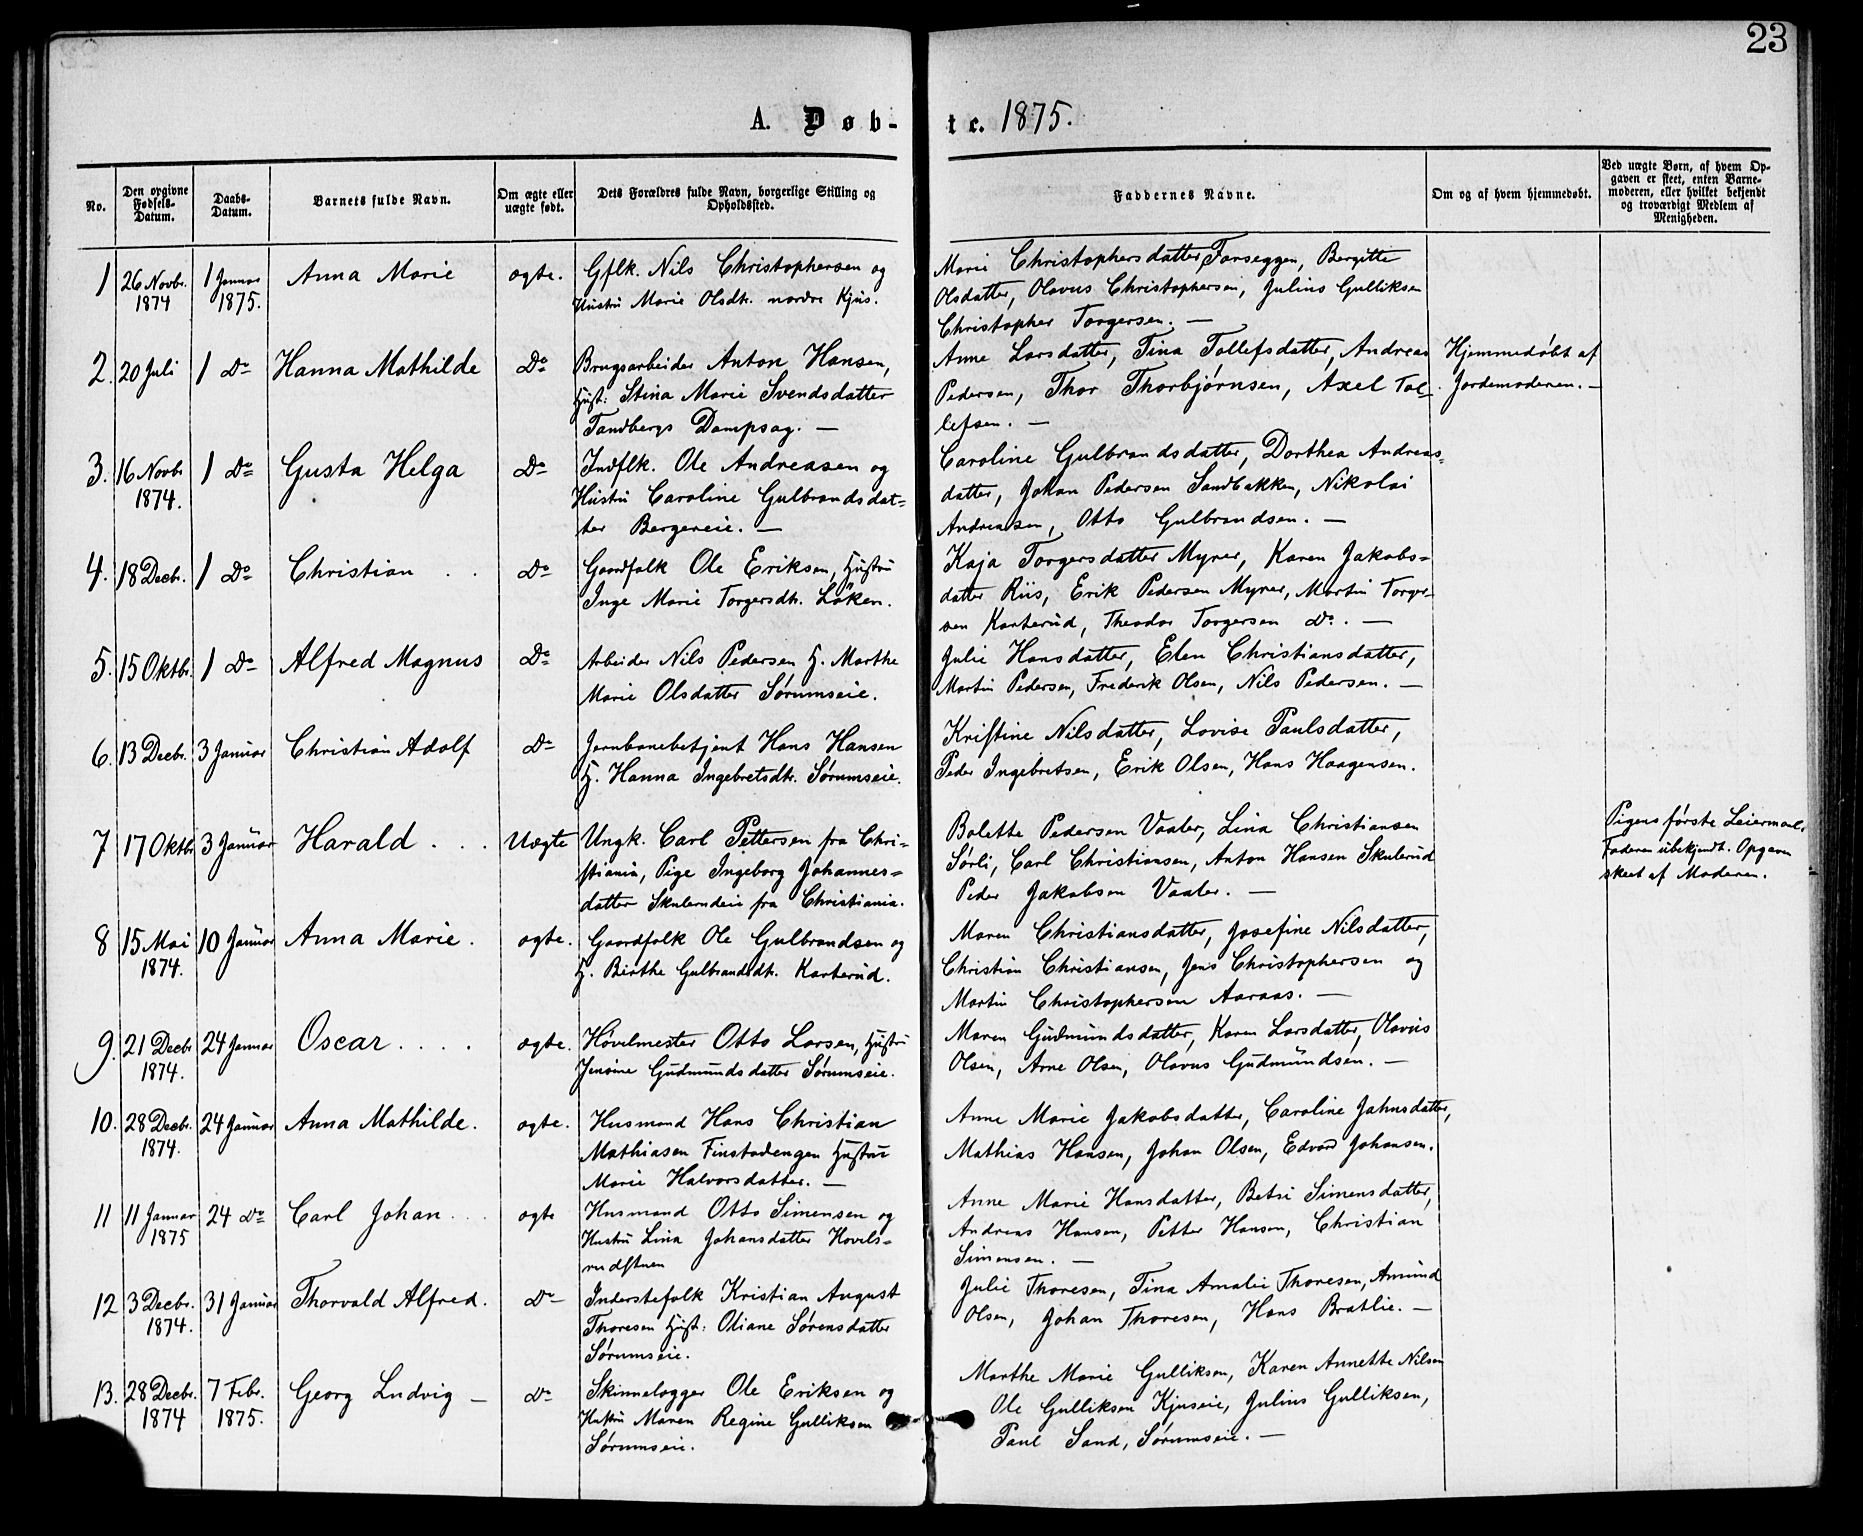 23
A. Døb-te. 1875.
No.
Den opgivne Fødsels-Datum.
Daabs-Datum.
Barnets fulde Navn.
Om ægte eller uægte født.
Dets Forældres fulde Navn, borgerlige Stilling og Opholdssted.
Faddernes Navne.
Om og af hvem hjemmedøbt.
Ved uægte Børn, af hvem Op-
gaven er skeet, enten Barne-
moderen, eller hvilket bekjendt
og troværdigt Medlem af
Menigheden.
1 26 Novbr. 1874 1 Januar 1875. Anna Marie ægte.
Gflk. Nils Christophersen og
Hustru Marie Olsdtr. nordre Kjus.
Marie Christophersdatter Farseggen, Bergitte
Olsdatter, Olavus Christophersen, Julius Gulliksen
Christopher Torgersen. —
2. 20 Juli 1 Do Hanna Mathilde Do
Brugsarbeider Anton Hansen,
Hust: Stina Marie Svendsdatter
Tandbergs Dampsag. —
Anne Larsdatter, Tina Tollefsdatter, Andreas
Pedersen, Thor Thorbjørnsen, Axel Tol-
lefsen. —
Hjemmedøbt af
Jordemoderen. —
3. 16 Novbr 1874. 1 Do Gusta Helga Do
Indflk. Ole Andreasen og
Hustru Caroline Gulbrandsdat-
ter Bergereie. —
Caroline Gulbrandsdatter, Dorthea Andreas-
datter, Johan Pedersen Sandbakken, Nikolai
Andreasen, Otto Gulbrandsen. —
4. 18 Decbr. 1 Do Christian . . Do
Gaardfolk Ole Eriksen, Hustru
Inge Marie Torgersdtr. Løken.
Kaja Torgersdatter Myrer, Karen Jakobs-
datter Riis, Erik Pedersen Myrer, Martin Torger-
sen Karterud, Theodor Torgersen Do. —
5. 15 Oktbr. 1 Do Alfred Magnus Do
Arbeider Nils Pedersen H. Marthe
Marie Olsdatter Sørumseie.
Julie Hansdatter, Elen Christiansdatter,
Martin Pedersen, Frederik Olsen, Nils Pedersen. —
6. 13 Decbr. 3 Januar Christian Adolf Do
Jernbanebetjent Hans Hansen
H. Hanna Ingebretsdtr. Sørumseie.
Kristine Nilsdatter, Lovise Paulsdatter,
Peder Ingebretsen, Erik Olsen, Hans Haagensen.
7 17 Oktbr 3 Januar Harald . . . Uægte
Ungk. Carl Pettersen fra Chri-
stiania, Pige Ingeborg Johannes-
datter Skulerudeie fra Christiania.
Bolette Pedersen Vaaler, Lina Christiansen
Sørli, Carl Christiansen, Anton Hansen Skulerud
Peder Jakobsen Vaaler. —
Pigens første Leiermaal.
Faderen ubekjendt. Opgaven
skeet af Moderen.
8 15 Mai 1874. 10 Januar Anna Marie. ægte.
Gaardfolk Ole Gulbrandsen og
H. Birthe Gulbrandsdtr. Karterud.
Maren Christiansdatter, Josefine Nilsdatter,
Christian Christiansen, Jens Christophersen og
Martin Christophersen Aaraas. —
9. 21 Decbr 1874. 24 Januar Oscar . . . . ægte.
Høvelmester Otto Larsen, Hustru
Jensine Gudmundsdatter Sørumseie.
Maren Gudmundsdatter, Karen Larsdatter, Olavus
Olsen, Arne Olsen, Olavus Gudmundsen. —
10. 28 Decbr. 1874. 24 Januar Anna Mathilde. ægte.
Husmand Hans Christian
Mathiasen Finstadengen Hustru
Marie Halvorsdatter. —
Anne Marie Jakobsdatter, Caroline Jahnsdatter,
Mathias Hansen, Johan Olsen, Edvard Johansen.
11 11 Januar 1875 24 Do Carl Johan . . . ægte
Husmand Otto Simensen og
Hustru Lina Johansdatter Hovels-
rudstuen
Anne Marie Hansdatter, Betsi Simensdatter,
Andreas Hansen, Petter Hansen, Christian
Simensen. —
12 3 Decbr. 1874. 31 Januar Thorvald Alfred. Do
Inderstefolk Kristian August
Thoresen Hust: Oliane Sørensdatter
Sørumseie.
Julie Thoresen, Tina Amalie Thoresen, Amund
Olsen, Johan Thoresen, Hans Bratlie. —
13. 28 Decbr. 1874 7 Febr. 1875. Georg Ludvig — Do
Skinnelægger Ole Eriksen og
Hustru Maren Regine Gulliksen
Sørumseie.
Marthe Marie Gulliksen, Karen Annette Nilsen
Ole Gulliksen Kjuseie, Julius Gulliksen,
Paul Sand, Sørumseie. —